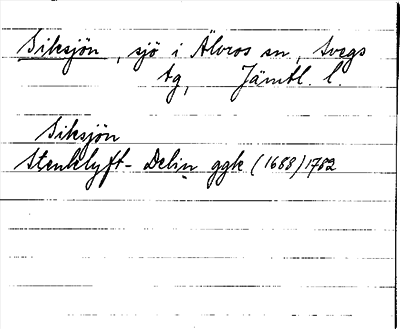 Siksjön, sjö i Älvros sn, Svegs
tg, Jämtl. l.
Siksjön
Stenklyft-Delin ggk (1688) 1782